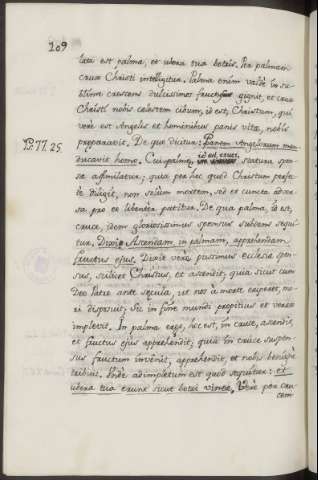 109
lata est palmæ, et ubera tua botris. Per palmam
crux Christi intelligitur. Palma enim valde in su-
blime crescens dulcissimos fructus gignit, et crux
Christi nobis cælestem cibum, id est, Christum, qui
vere est Angelis et hominibus panis vitæ, nobis
præparavit. De quo dictum: Panem Angelorum man-
Ps. 77. 25.
ducavit homo. Cui palmæ, id est, cruci, statura spon-
sæ assimilatur, quia per hoc quod Christum perfe-
cte diligit, non solum mortem, sed et cuncta adver-
sa pro eo libenter patitur. De qua palma, id est,
cruce, idem gloriosissimus sponsus subdens sequi-
tur, Dixi: Ascendam in palmam, apprehendam
fructus ejus. Dixit vero piissimus ecclesiæ spon-
sus, scilicet Christus, et ascendit, quia sicut cum
Deo Patre ante sæcula, ut nos a morte eriperet, mo-
ri disposuit, sic in fine mundi propitius et verax
implevit. In palma ergo, hoc est, in cruce, ascendit,
et fructus ejus apprehendit; quia in cruce suspen-
sus fructum invenit, apprehendit, et nobis benigne
tribuit. Unde adimpletum est quod sequitur: et
ubera tua erunt sicut botri vineæ. Vere per cru-
cem